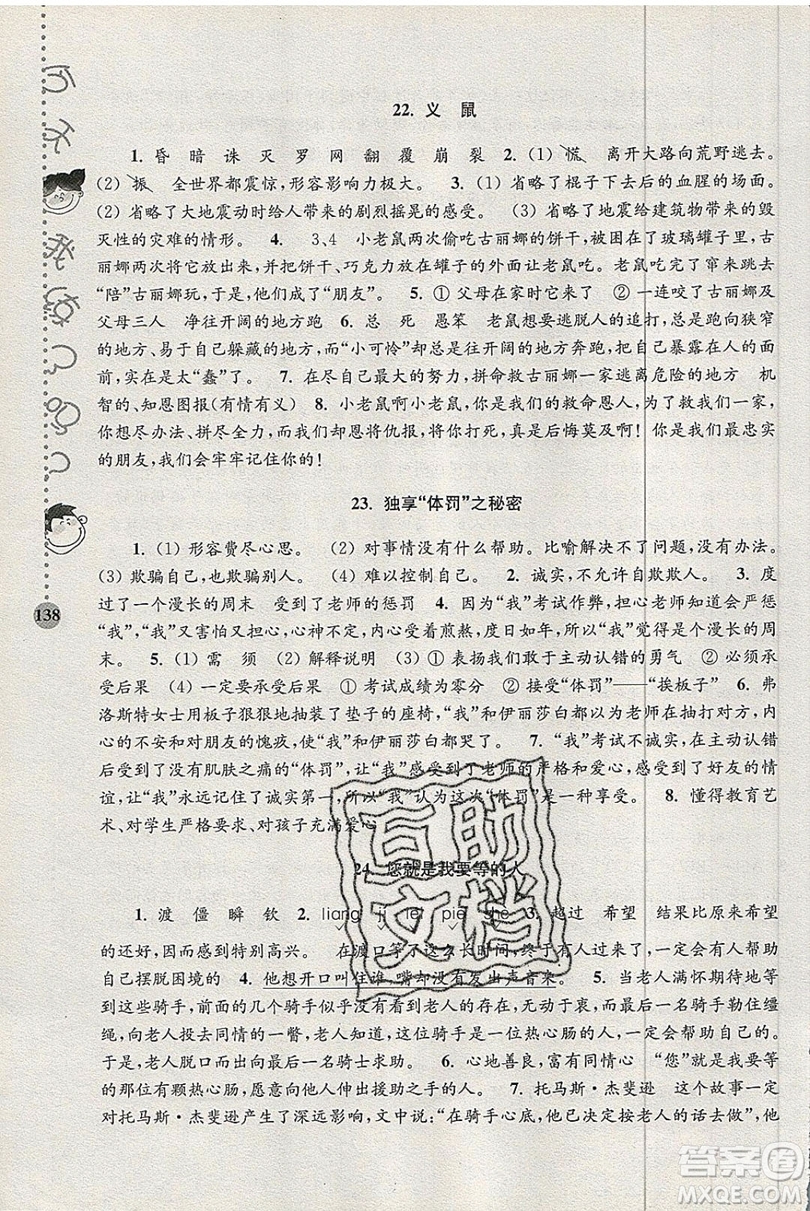 22. 义　鼠
1. 昏　暗　诛　灭　罗　网　翻　覆　崩　裂　2. (1) 慌　离开大路向荒野逃去。
(2) 振　全世界都震惊，形容影响力极大。　3. (1) 省略了棍子下去后的血腥的场面。
(2) 省略了大地震动时给人带来的剧烈摇晃的感受。　(3) 省略了地震给建筑物带来的毁
灭性的灾难的情形。　4.　3、4　小老鼠两次偷吃古丽娜的饼干，被困在了玻璃罐子里。古
丽娜两次将它放出来，并把饼干、巧克力放在罐子的外面让老鼠吃。老鼠吃完了窜来跳去，
“陪”古丽娜玩，于是，他们成了“朋友”。　5. ① 父母在家时它来了　② 一连咬了古丽娜及
父母三人　净往开阔的地方跑　6. 总　死　愚笨　老鼠想要逃脱人的追打，总是向狭窄
的地方、易于自己躲藏的地方跑，而“小可怜”总是往开阔的地方奔跑，把自己暴露在人的面
前，实在是太“蠢”了。　7. 尽自己最大的努力，拼命救古丽娜一家逃离危险的地方　机
智的、知恩图报(有情有义)　8. 小老鼠啊小老鼠，你是我们的救命恩人，你救了我们一家，
你想尽办法、拼尽全力，而我们却恩将仇报，将你打死，真是后悔莫及啊！你是我们最忠实
的朋友，我们会牢牢记住你的！
23. 独享“体罚”之秘密
1. (1) 形容费尽心思。　(2) 对事情没有什么帮助。比喻解决不了问题，没有办法。
(3) 欺骗自己，也欺骗别人。　(4) 难以控制自己。　2. 诚实，不允许自欺欺人。　3. 度
过了一个漫长的周末　受到了老师的惩罚　4. 因为“我”考试作弊，担心老师知道会严惩
“我”，“我”又害怕又担心，心神不定，内心受着煎熬，度日如年，所以觉得是个漫长的周
末。　5. (1) 需　须　(2) 解释说明　(3) ① 表扬我们敢于主动认错的勇气　② 必须承
受后果　(4) 一定要承受后果　① 考试成绩为零分　② 接受“体罚”——“挨板子”　6. 弗
洛斯特女士用板子狠狠地抽装了垫子的座椅，“我”和伊丽莎白都以为老师在抽打对方，内
心的不安和对朋友的愧疚，使“我”和伊丽莎白都哭了。　7. “我”考试不诚实，在主动认错
后受到了没有肌肤之痛的“体罚”，让“我”感受到了老师的严格和爱心，感受到了朋友的情
谊，让“我”永远记住了诚实第一，所以“我”认为这次“体罚”是一种享受。　8. 懂得教育艺
术、对学生严格要求、对孩子充满爱心
24. 您就是我要等的人
1. 渡　僵　瞬　钦　2. liang　ji　lei　pie　she　3. 超过　希望　结果比原来希望
的还好，因而感到特别高兴。　在渡口等了这么长时间，终于等到了，一定会有人帮助
自己摆脱困境的　4. 他想开口叫住谁，嘴却没发出声音来。　5. 当老人满怀期待地迎
到这些骑手，前面的几个骑手似乎没有看到老人的存在，无动于衷，当最后一名骑手勒住缰
绳，向老人投去同情的一瞥，老人知道，这位骑手是一位热心肠的人，一定会帮助自己
于是，老人脱口而出向最后一名骑士求助。　6. 心地善良，富有同情心　“您”就是我要等
的那位有热心肠，一定会向我伸出援助之手的人。　7. 托马斯·杰斐逊　这个故事一定
对托马斯·杰斐逊产生了深远影响，文中说，“在骑手心底，他已决定按老人的话去做”，他
138
互助文档
答案圈
MXQE.COM